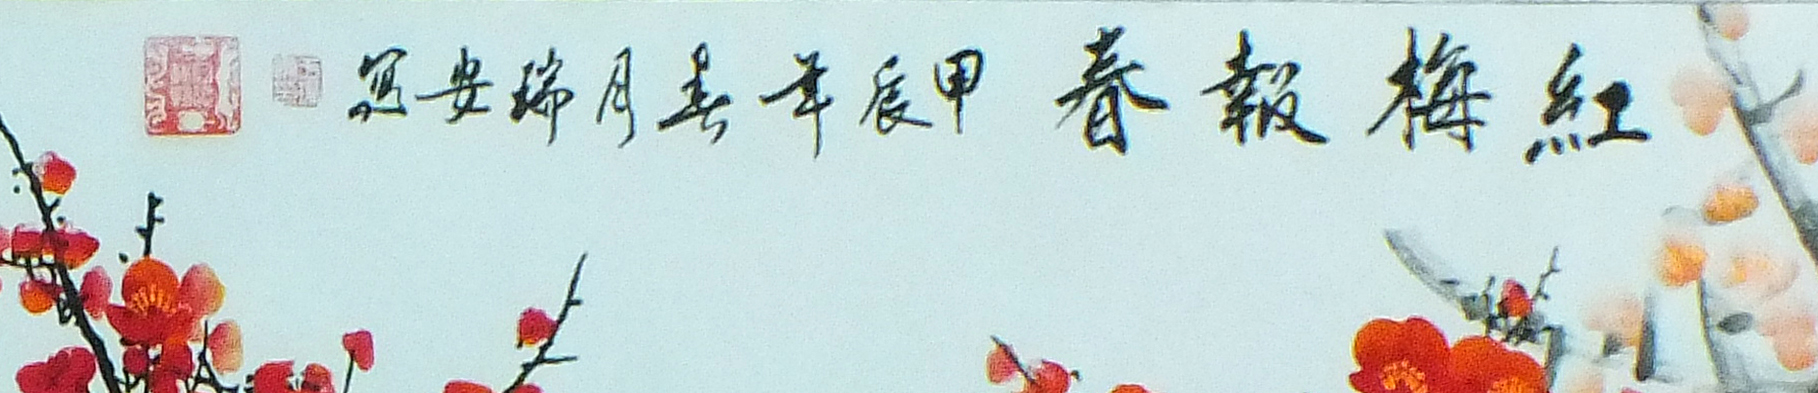 紅梅報春 甲辰年春月瑞安寫